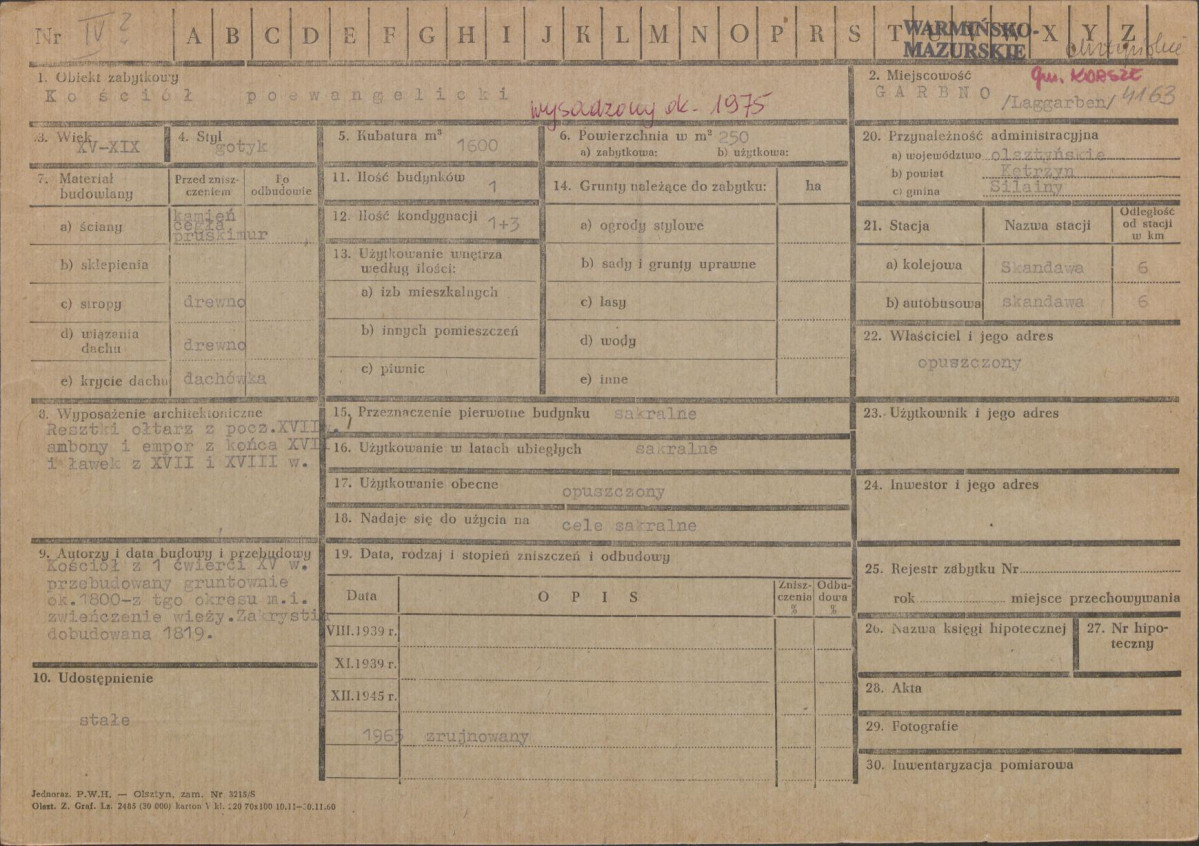 Nr IV ?
A B C D E F G H I J K L M N O P R S T U V W X Y Z
WARMIŃSKO-
MAZURSKIE
1. Obiekt zabytkowy
Kościół poewangelicki
wysadzony ok. 1975
2. Miejscowość
gm. KORSZE
GARBNO /Laggarben/ 4163
3. Wiek
XV-XIX
4. Styl
gotyk
5. Kubatura m³
1600
6. Powierzchnia w m² 250
a) zabytkowa: b) użytkowa:
7. Materiał
budowlany
Przed znisz-
czeniem
Po
odbudowie
a) ściany
kamień
cegła
pruskimur
b) sklepienia
c) stropy drewno
d) wiązania
dachu drewno
e) krycie dachu dachówka
8. Wyposażenie architektoniczne
Resztki ołtarz z pocz.XVII w.
ambony i empor z końca XVII
i ławek z XVII i XVIII w.
9. Autorzy i data budowy i przebudowy
Kościół z 1 ćwierci XV w.
przebudowany gruntownie
ok.1800-z tgo okresu m.i.
zwieńczenie wieży.Zakrystia
dobudowana 1819.
10. Udostępnienie
stałe
11. Ilość budynków
1
12. Ilość kondygnacji 1+3
13. Użytkowanie wnętrza
według ilości:
a) izb mieszkalnych
b) innych pomieszczeń
c) piwnic
14. Grunty należące do zabytku: ha
a) ogrody stylowe
b) sady i grunty uprawne
c) lasy
d) wody
e) inne
15. Przeznaczenie pierwotne budynku sakralne
16. Użytkowanie w latach ubiegłych sakralne
17. Użytkowanie obecne opuszczony
18. Nadaje się do użycia na cele sakralne
19. Data, rodzaj i stopień zniszczeń i odbudowy
Data
O P I S
Znisz-
czenia
%
Odbu-
dowa
%
VIII.1939 r.
XI.1939 r.
XII.1945 r.
1965 zrujnowany
20. Przynależność administracyjna
a) województwo olsztyńskie
b) powiat Kętrzyn
c) gmina Silainy
21. Stacja
Nazwa stacji
Odległość
od stacji
w km
a) kolejowa Skandawa 6
b) autobusowa skandawa 6
22. Właściciel i jego adres
opuszczony
23. Użytkownik i jego adres
24. Inwestor i jego adres
25. Rejestr zabytku Nr
rok miejsce przechowywania
26. Nazwa księgi hipotecznej
27. Nr hipo-
teczny
28. Akta
29. Fotografie
30. Inwentaryzacja pomiarowa
Jednoraz. P.W.H. — Olsztyn, zam. Nr 3215/S
Olszt. Z. Graf. Lz. 2485 (30 000) karton V kl. 220 70x100 10.11—30.11.60